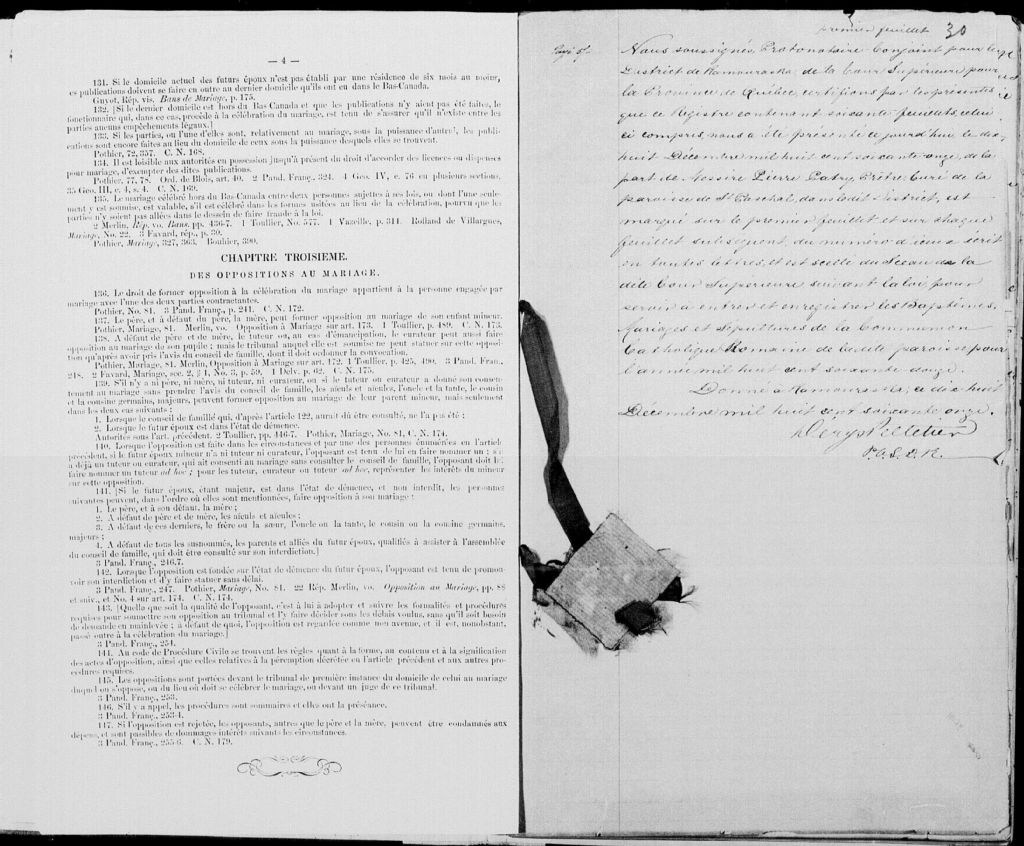 — 4 —
131. Si le domicile actuel des futurs époux n'est pas établi par une résidence de six mois au moins,
ces publications doivent se faire en outre au dernier domicile qu'ils ont eu dans le Bas-Canada.
Guyot, Rép. vis. Bans de Mariage, p. 175.
132. [Si le dernier domicile est hors du Bas-Canada et que les publications n'y aient pas été faites, le
fonctionnaire qui, dans ce cas, procède à la célébration du mariage, est tenu de s'assurer qu'il n'existe entre les
parties aucuns empêchements légaux.]
133. Si les parties, ou l'une d'elles sont, relativement au mariage, sous la puissance d'autrui, les publi-
cations sont encore faites au lieu du domicile de ceux sous la puissance desquels elles se trouvent.
Pothier, 72, 357. C. N. 168.
134. Il est loisible aux autorités en possession jusqu'à présent du droit d'accorder des licences ou dispenses
pour mariage, d'exempter des dites publications.
Pothier, 77, 78. Ord. de Blois, art. 40. 2 Pand. Franç. 324. 4 Geo. IV, c. 76 en plusieurs sections,
35 Geo. III, c. 4, s. 4. C. N. 169.
135. Le mariage célébré hors du Bas-Canada entre deux personnes sujettes à ses lois, ou dont l'une seule-
ment y est soumise, est valable, s'il est célébré dans les formes usitées au lieu de la célébration, pourvu que les
parties n'y soient pas allées dans le dessein de faire fraude à la loi.
2 Merlin, Rép. vo. Bans, pp. 436-7. 1 Toullier, No. 577. 1 Vazeille, p. 311. Rolland de Villargues,
Mariage, No. 22. 3 Favard, rép., p. 30.
Pothier, Mariage, 327, 363. Bouhier, 390.
CHAPITRE TROISIEME.
DES OPPOSITIONS AU MARIAGE.
136. Le droit de former opposition à la célébration du mariage appartient à la personne engagée par
mariage avec l'une des deux parties contractantes.
Pothier, No. 81. 3 Pand. Franç., p. 241. C. N. 172.
137. Le père, et à défaut du père, la mère, peut former opposition au mariage de son enfant mineur.
Pothier, Mariage, 81. Merlin, vo. Opposition à Mariage sur art. 173. 1 Toullier, p. 489. C. N. 173.
138. A défaut de père et de mère, le tuteur ou, au cas d'émancipation, le curateur peut aussi faire
opposition au mariage de son pupile ; mais le tribunal auquel elle est soumise ne peut statuer sur cette opposi-
tion qu'après avoir pris l'avis du conseil de famille, dont il doit ordonner la convocation.
Pothier, Mariage, 81. Merlin, Opposition à Mariage sur art. 172. 1 Toullier, p. 425, 490. 3 Pand. Fran.,
248. 2 Favard, Mariage, sec. 2, § 1, No. 3, p. 59. 1 Delv. p. 62. C. N. 175.
139. S'il n'y a ni père, ni mère, ni tuteur, ni curateur, ou si le tuteur ou curateur a donné son consen-
tement au mariage sans prendre l'avis du conseil de famille, les aïeuls et aïeules, l'oncle et la tante, le cousin
et la cousine germains, majeurs, peuvent former opposition au mariage de leur parent mineur, mais seulement
dans les deux cas suivants :
1. Lorsque le conseil de famille qui, d'après l'article 122, aurait dû être consulté, ne l'a pas été ;
2. Lorsque le futur époux est dans l'état de démence.
Autorités sous l'art. précédent. 2 Toullier, pp. 446-7. Pothier, Mariage, No. 81, C. N. 174.
140. Lorsque l'opposition est faite dans les circonstances et par une des personnes énumérées en l'article
précédent, si le futur époux mineur n'a ni tuteur ni curateur, l'opposant est tenu de lui en faire nommer un ; s'il
a déjà un tuteur ou curateur, qui ait consenti au mariage sans consulter le conseil de famille, l'opposant doit le
faire nommer un tuteur ad hoc ; pour les tuteur, curateur ou tuteur ad hoc, représenter les intérêts du mineur
sur cette opposition.
141. [Si le futur époux, étant majeur, est dans l'état de démence, et non interdit, les personnes
suivantes peuvent, dans l'ordre où elles sont mentionnées, faire opposition à son mariage :
1. Le père, et à son défaut, la mère ;
2. A défaut de père et de mère, les aïeuls et aïeules ;
3. A défaut de ces derniers, le frère ou la sœur, l'oncle ou la tante, le cousin ou la cousine germains,
majeurs ;
4. A défaut de tous les susnommés, les parents et alliés du futur époux, qualifiés à assister à l'assemblée
du conseil de famille, qui doit être consulté sur son interdiction.]
3 Pand. Franç., 246,7.
142. Lorsque l'opposition est fondée sur l'état de démence du futur époux, l'opposant est tenu de promou-
voir son interdiction et d'y faire statuer sans délai.
3 Pand. Franç., 247. Pothier, Mariage, No. 81. 22 Rép. Merlin, vo. Opposition au Mariage, pp. 88
et suiv., et No. 4 sur art. 174. C. N. 174.
143. [Quelle que soit la qualité de l'opposant, c'est à lui à adopter et suivre les formalités et procédures
requises pour soumettre son opposition au tribunal et l'y faire décider sous les délais voulus, sans qu'il soit besoin
de demande en mainlevée ; à défaut de quoi, l'opposition est regardée comme non avenue, et il est, nonobstant,
passé outre à la célébration du mariage.]
3 Pand. Franç., 254.
144. Au code de Procédure Civile se trouvent les règles quant à la forme, au contenu et à la signification
des actes d'opposition, ainsi que celles relatives à la péremption décrétée en l'article précédent et aux autres pro-
cédures requises.
145. Les oppositions sont portées devant le tribunal de première instance du domicile de celui au mariage
duquel on s'oppose, ou du lieu où doit se célébrer le mariage, ou devant un juge de ce tribunal.
3 Pand. Franç., 253.
146. S'il y a appel, les procédures sont sommaires et elles ont la préséance.
3 Pand. Franç., 253-4.
147. Si l'opposition est rejetée, les opposants, autres que le père et la mère, peuvent être condamnés aux
dépens, et sont passibles de dommages intérêts suivants les circonstances.
3 Pand. Franç., 255-6. C. N. 179.
premier feuillet 30
Nous soussignés, Protonotaire Conjoint pour le
District de Kamouraska, de la Cour Supérieure pour
la Province de Québec, certifions par les présentes
que ce Registre contenant soixante feuillets, celui
ci compris, nous a été présenté ce jourd'hui le dix
huit Décembre mil huit cent soixante onze, de la
part de Messire Pierre Patry, Prêtre, Curé de la
paroisse de St Paschal, dans ledit District, est
marqué sur le premier feuillet et sur chaque
feuillet subséquent, du numéro d'iceux écrit
en toutes lettres, et est scellé du Sceau de la
dite Cour Supérieure suivant la loi, pour
servir à entrer et enregistrer les Baptêmes,
Mariages et Sépultures de la Communion
Catholique Romaine de ladite paroisse pour
l'année mil huit cent soixante douze.
Donné à Kamouraska, ce dix huit
Décembre mil huit cent soixante onze.
Pelletier
P. C. S. D. K.